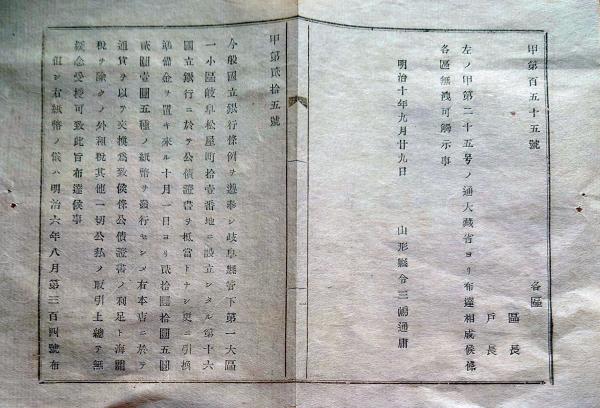 甲第百五十五號
各區
區長
戸長
左ノ甲第二十五号ノ通大藏省ヨリ布達相成候條
各區無洩可觸示事
明治十年九月廿九日
山形縣令三島通庸
甲第貳拾五號
今般國立銀行條例ヲ遵奉シ岐阜縣管下第一大區
一小區岐阜松屋町拾壹番地ニ設立シタル第十六
國立銀行ニ於テ公債證書ヲ抵當トナシ更ニ引換
準備金ヲ置キ來ル十月一日ヨリ貳拾圓拾圓五圓
貳圓壹圓五種ノ紙幣ヲ發行セシメ右本店ニ於テ
通貨ヲ以テ交換爲致候條公債證書ノ利足ト海關
税ヲ除クノ外租税其他一切公私ノ取引上總テ無
疑念受授可致此旨布達候事
但シ右紙幣ノ儀ハ明治六年八月第三百四號布